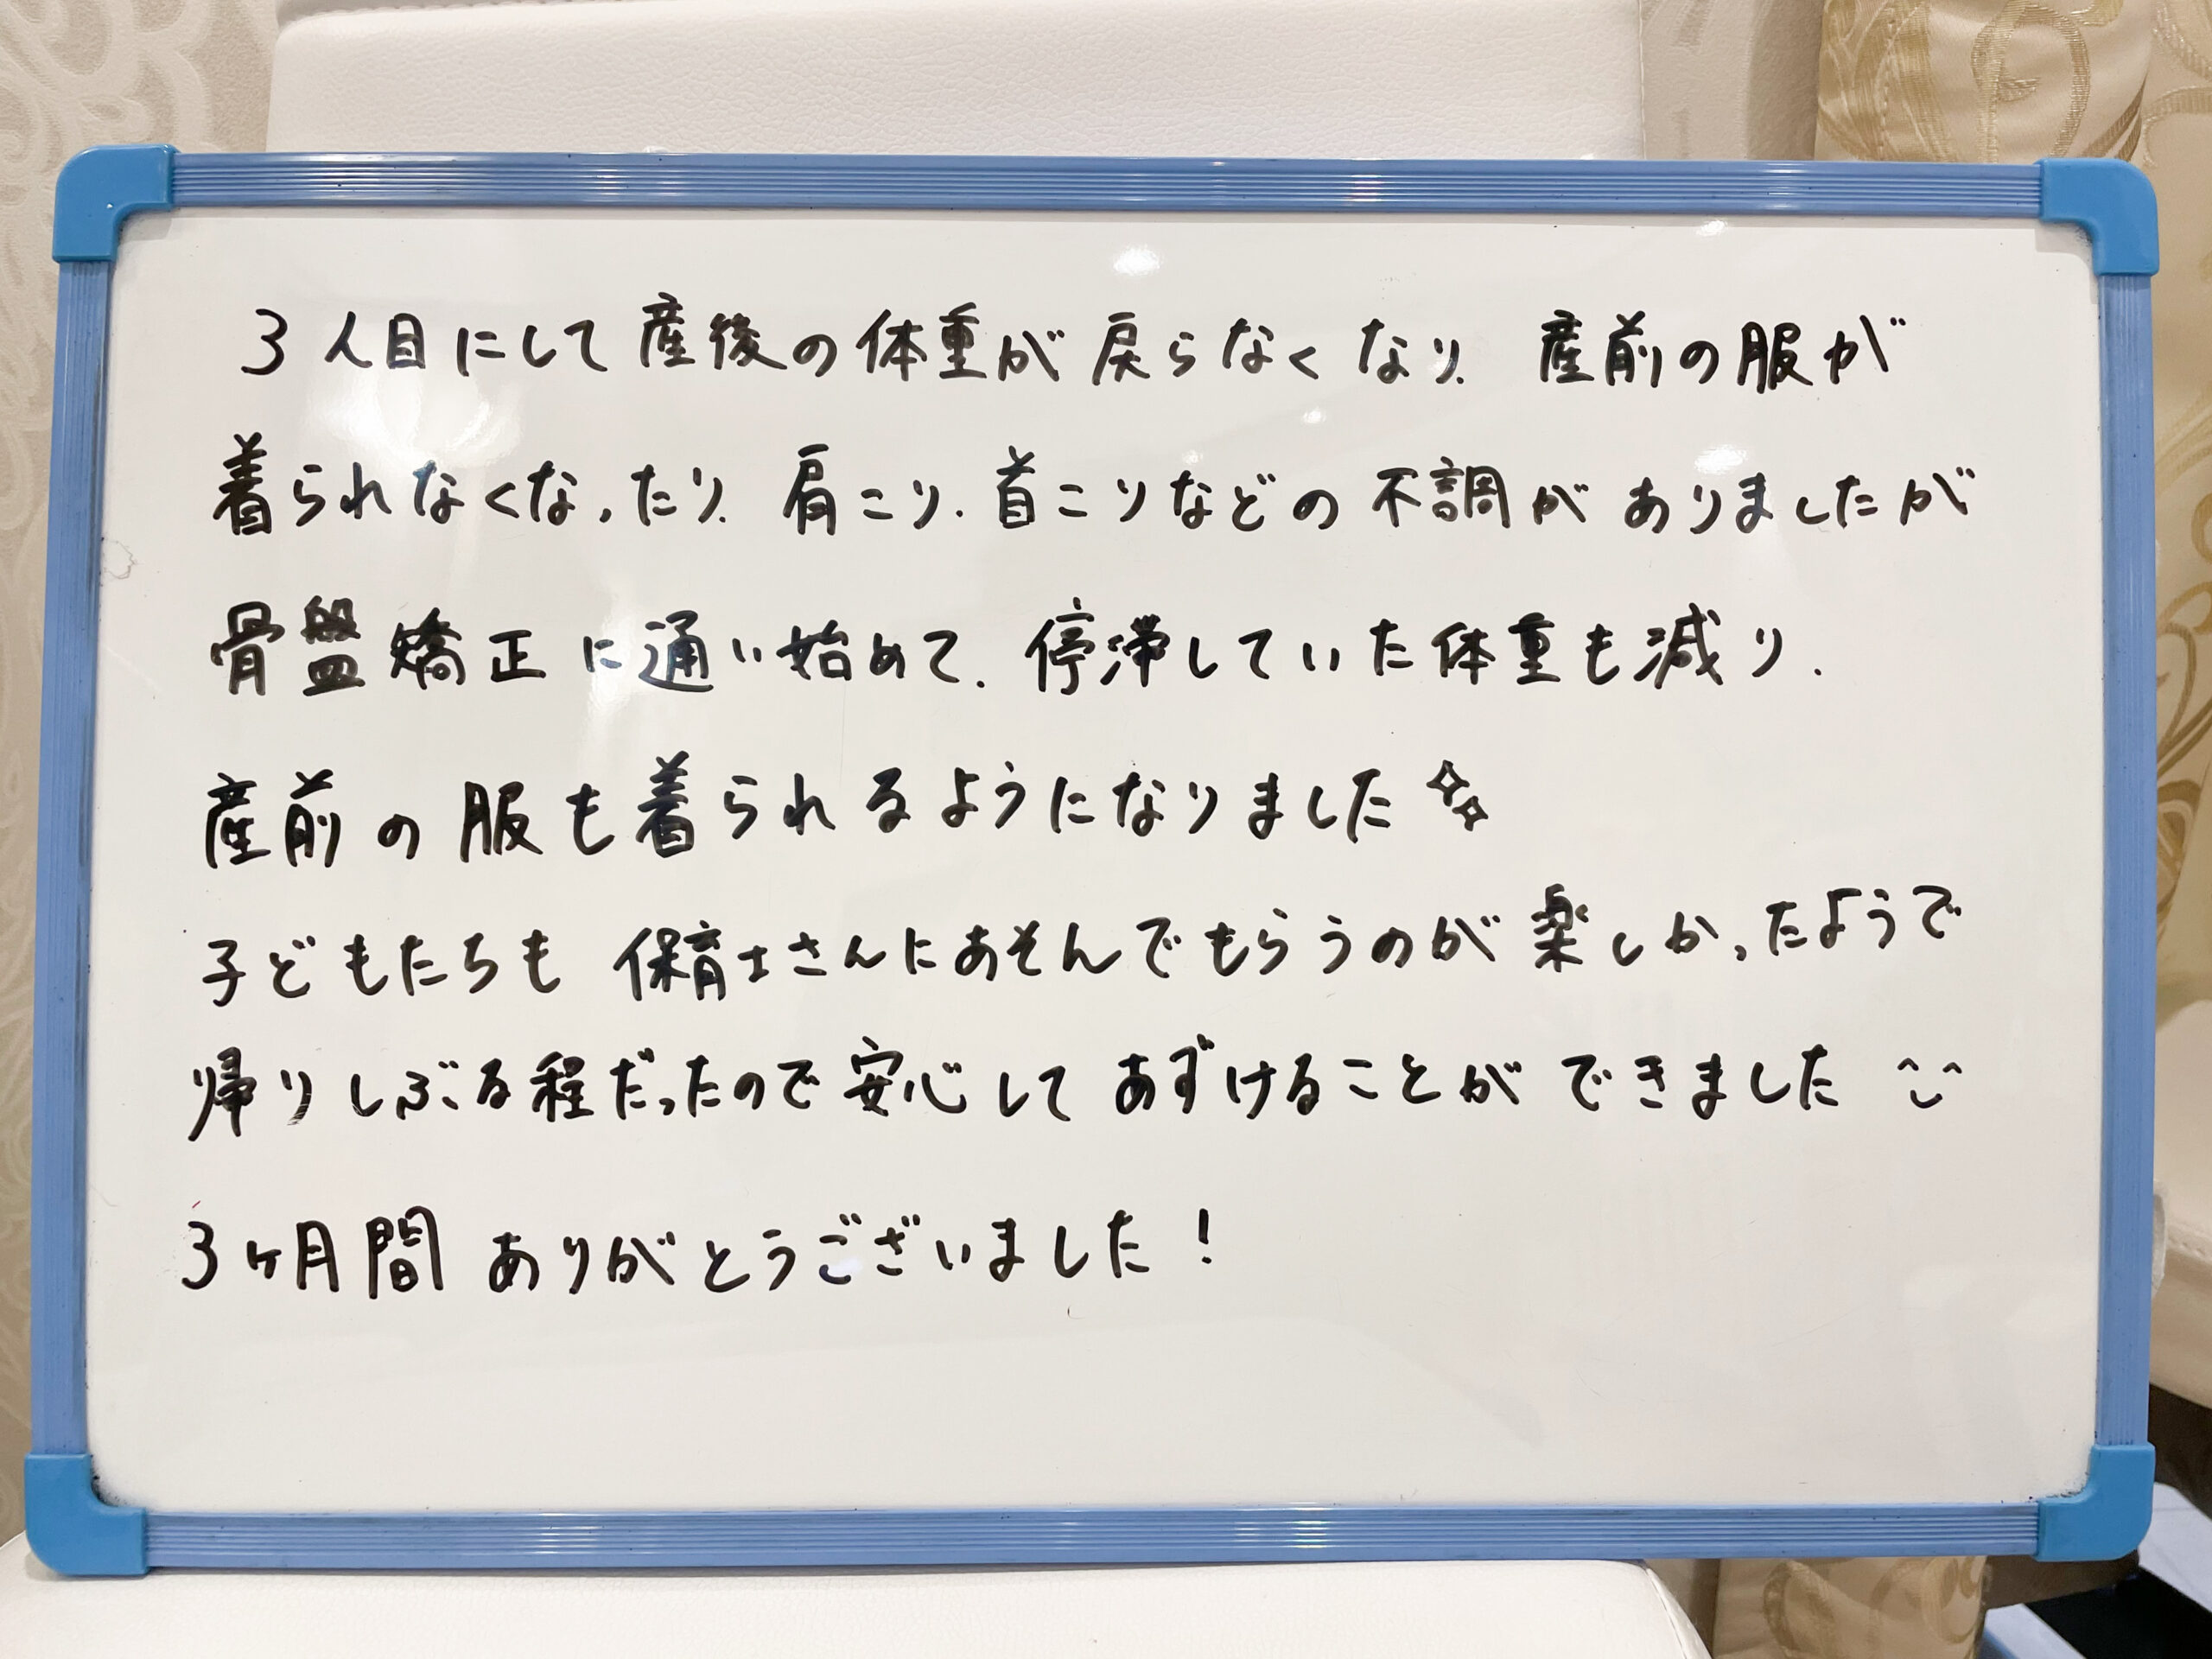 3人目にして産後の体重が戻らなくなり、産前の服が
着られなくなったり、肩こり、首こりなどの不調がありましたが
骨盤矯正に通い始めて、停滞していた体重も減り、
産前の服も着られるようになりました✨
子どもたちも保育士さんにあそんでもらうのが楽しかったようで
帰りしぶる程だったので安心してあずけることができました^^
3ヶ月間ありがとうございました!